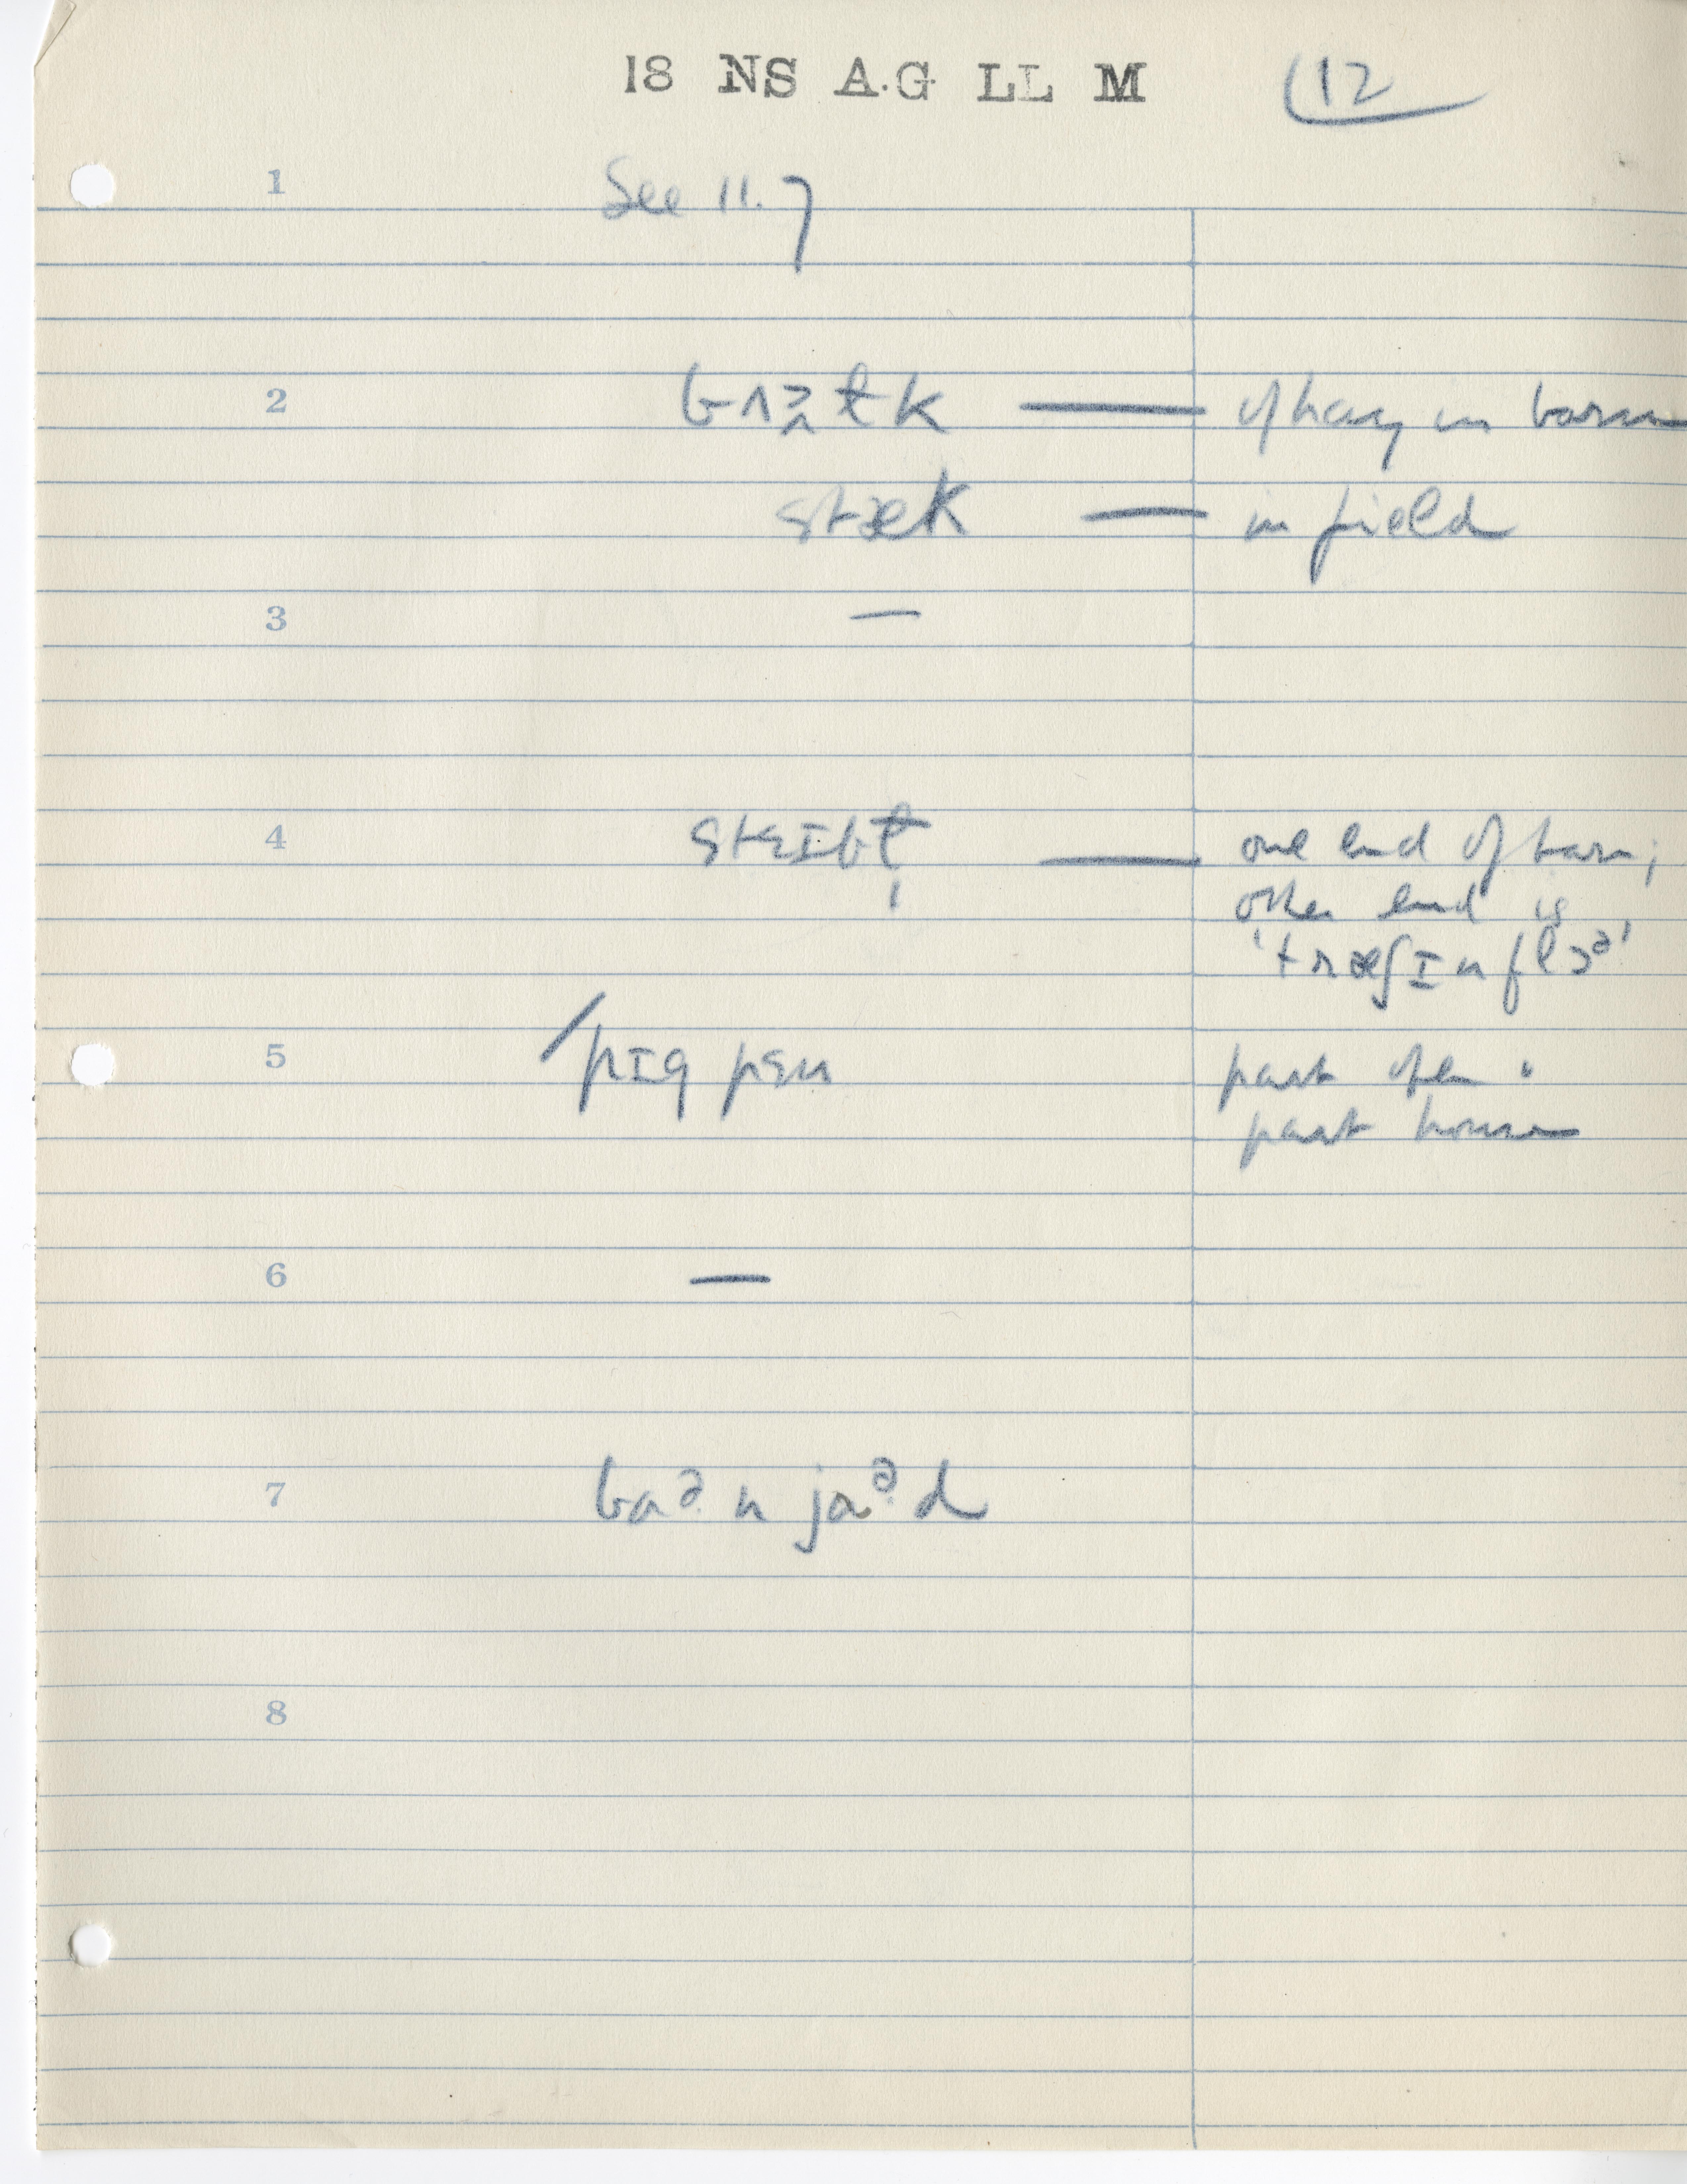 18 NS A.G LL M 12
1 See 11.7
2 of hay in barn
stæk — in field
3 —
4 steɪbɫ̩ — one end of barn;
other end is
'træʃɪnflɔᵊ'
5 /pɪg pɛn part open
part house
6 —
7 baᵊn jaᵊd
8